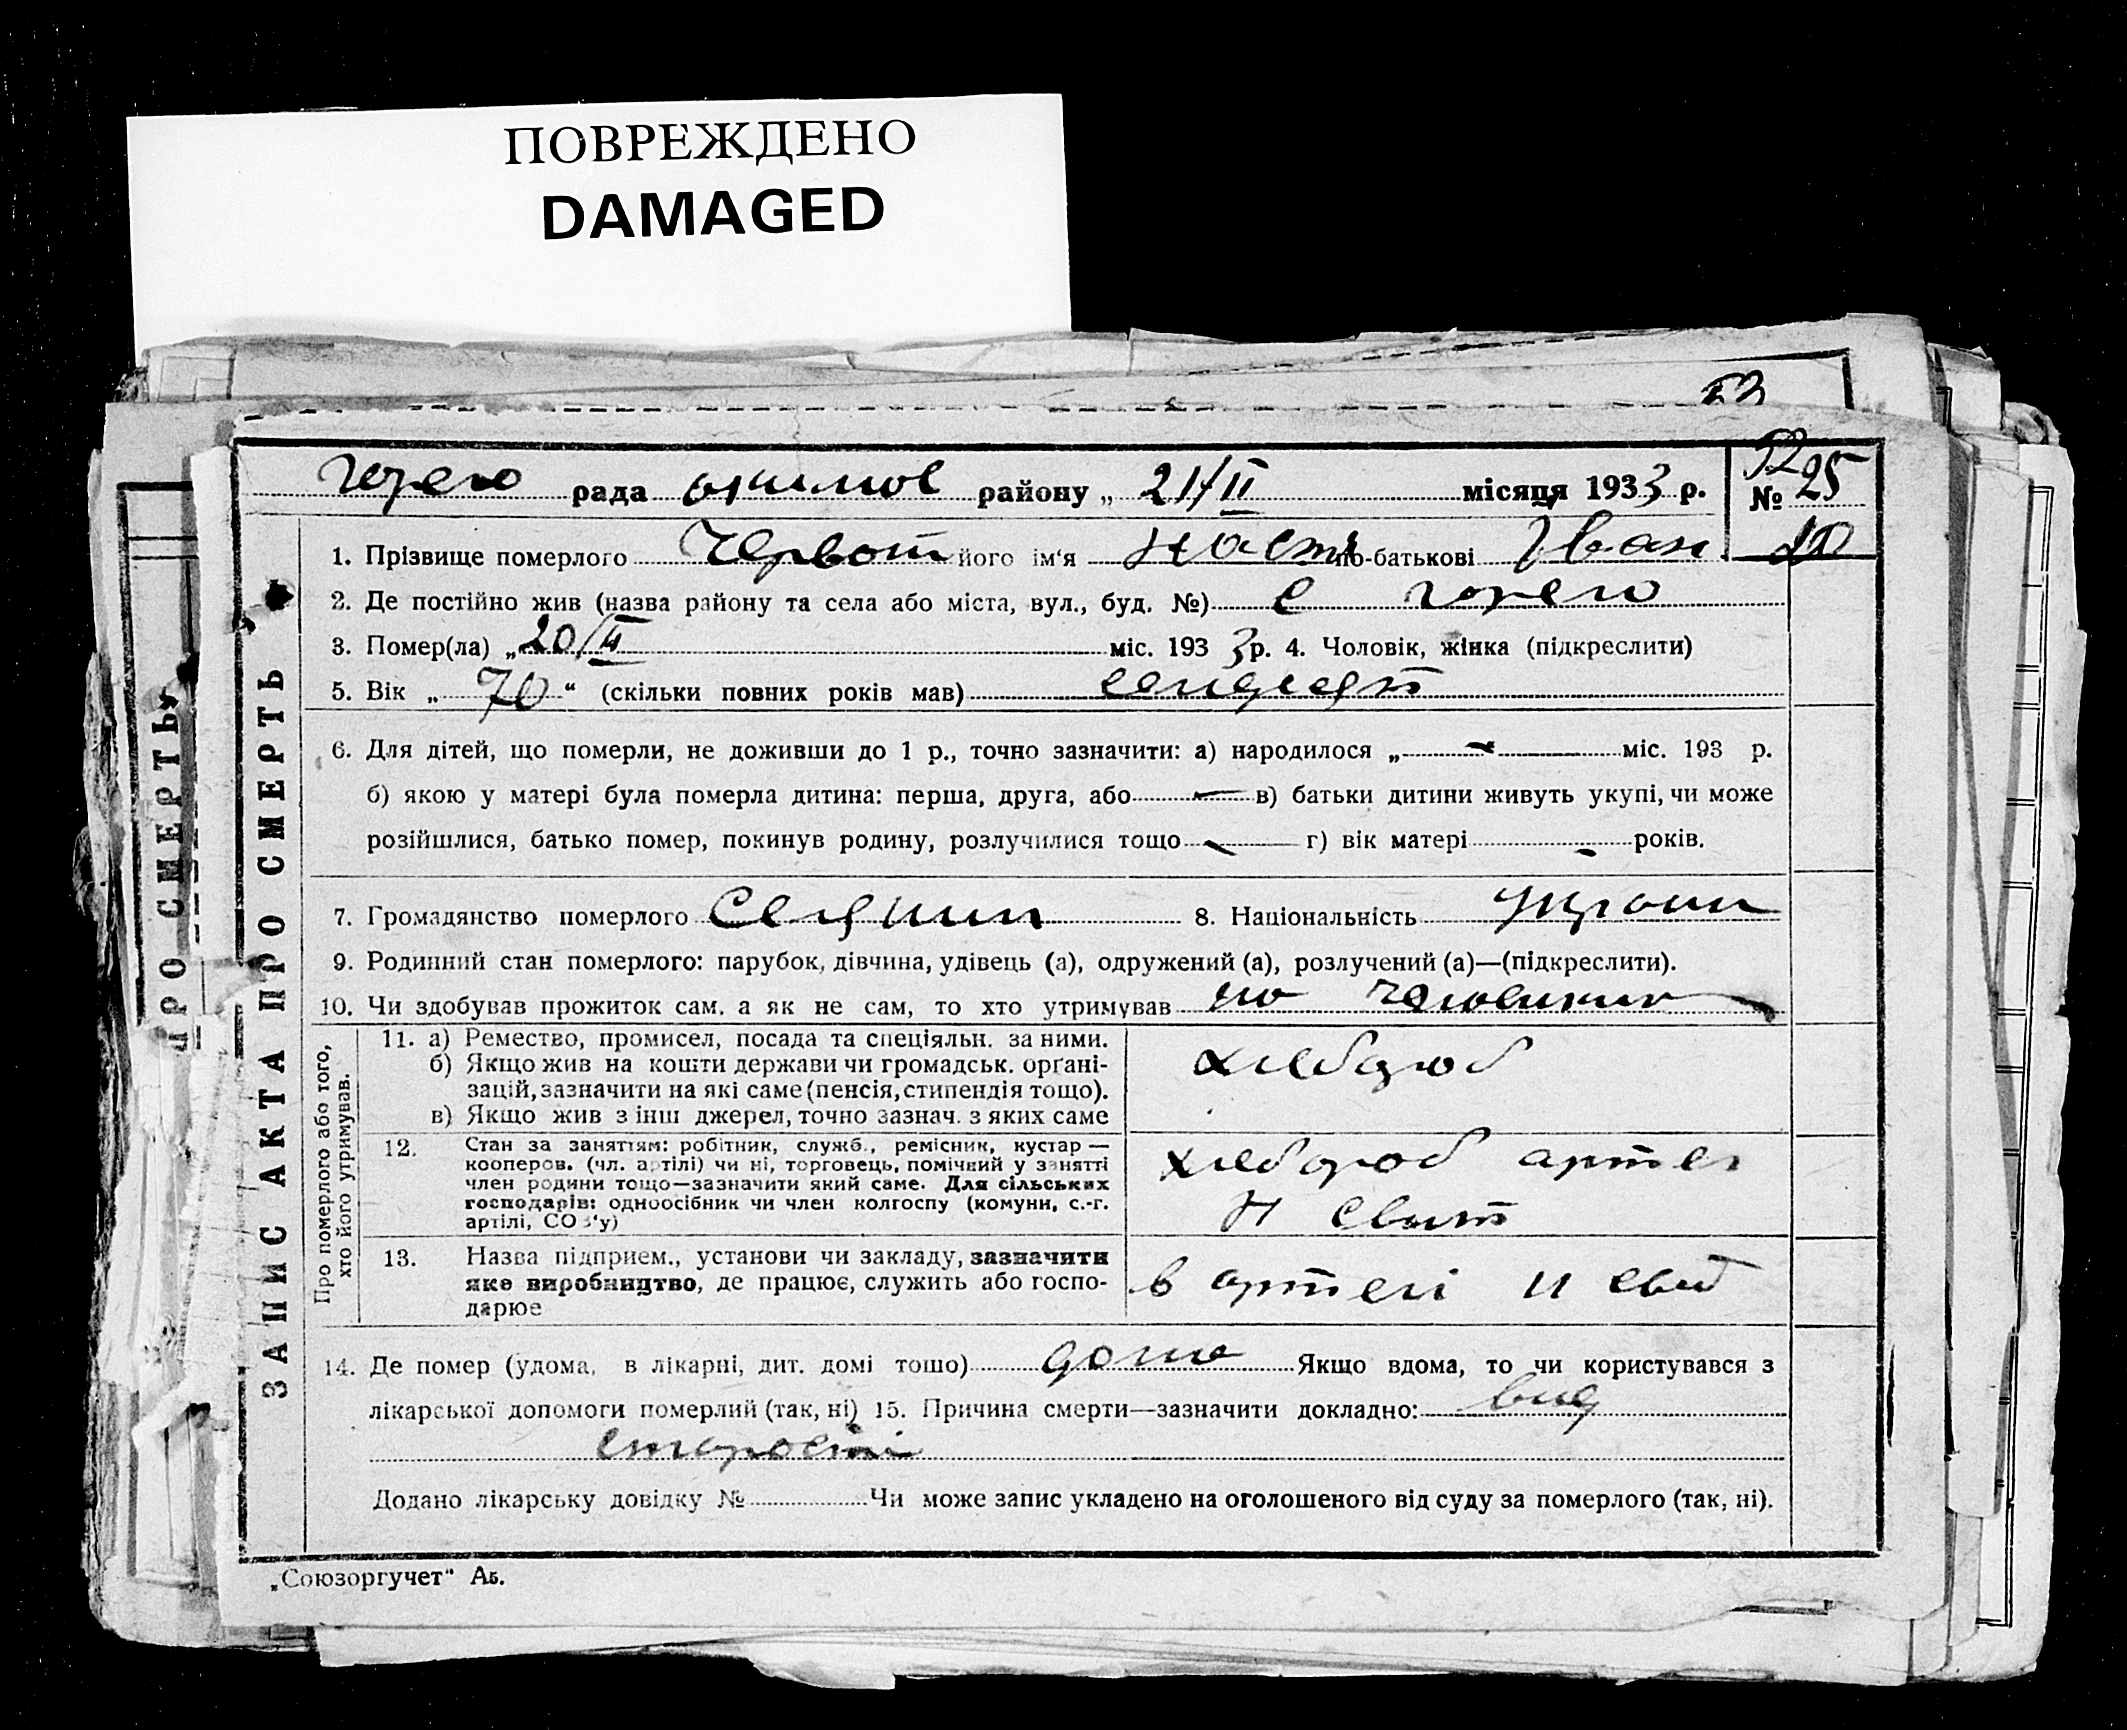 ПОВРЕЖДЕНО
DAMAGED
53
52
рада районну „ 21/II місяця 1933 р. № 25
1. Прізвище померлого Червот його ім'я Наст по-батькові Іван
2. Де постійно жив (назва району та села або міста, вул., буд. №) с
3. Помер(ла) „ 20/II міс. 193 3 р. 4. Чоловік, жінка (підкреслити)
5. Вік „ 70 “ (скільки повних років мав) сімдесят
6. Для дітей, що померли, не доживши до 1 р., точно зазначити: а) народилося „ – міс. 193 р.
б) якою у матері була померла дитина: перша, друга, або – в) батьки дитини живуть укупі, чи може
розійшлися, батько помер, покинув родину, розлучилися тощо – г) вік матері – років.
7. Громадянство померлого 8. Національність Україн
9. Родинний стан померлого: парубок, дівчина, удівець (а), одружений (а), розлучений (а)—(підкреслити).
10. Чи здобував прожиток сам, а як не сам, то хто утримував
Про померлого або того, хто його утримував.
11. а) Ремество, промисел, посада та спеціяльн. за ними.
б) Якщо жив на кошти держави чи громадськ. орґані-
зацій, зазначити на які саме (пенсія, стипендія тощо).
в) Якщо жив з інш джерел, точно зазнач. з яких саме
хлебороб
12. Стан за заняттям: робітник, службо., ремісник, кустар —
кооперов. (чл. артілі) чи ні, торговець, помічний у занятті
член родини тощо—зазначити який саме. Для сільських
господарів: одноосібник чи член колгоспу (комуни, с.-г.
артілі, СОЗ'у)
хлебороб артел
Н Свит
13. Назва підприєм., установи чи закладу, зазначити
яке виробництво, де працює, служить або госпо-
дарює
в артелі Н свит
14. Де помер (удома, в лікарні, дит. домі тощо) дома Якщо вдома, то чи користувався з
лікарської допомоги померлий (так, ні) 15. Причина смерти—зазначити докладно: вид
старості
Додано лікарську довідку № Чи може запис укладено на оголошеного від суду за померлого (так, ні).
„Союзоргучет“ Аб.
ЗАПИС АКТА ПРО СМЕРТЬ
ПРО СМЕРТЬ